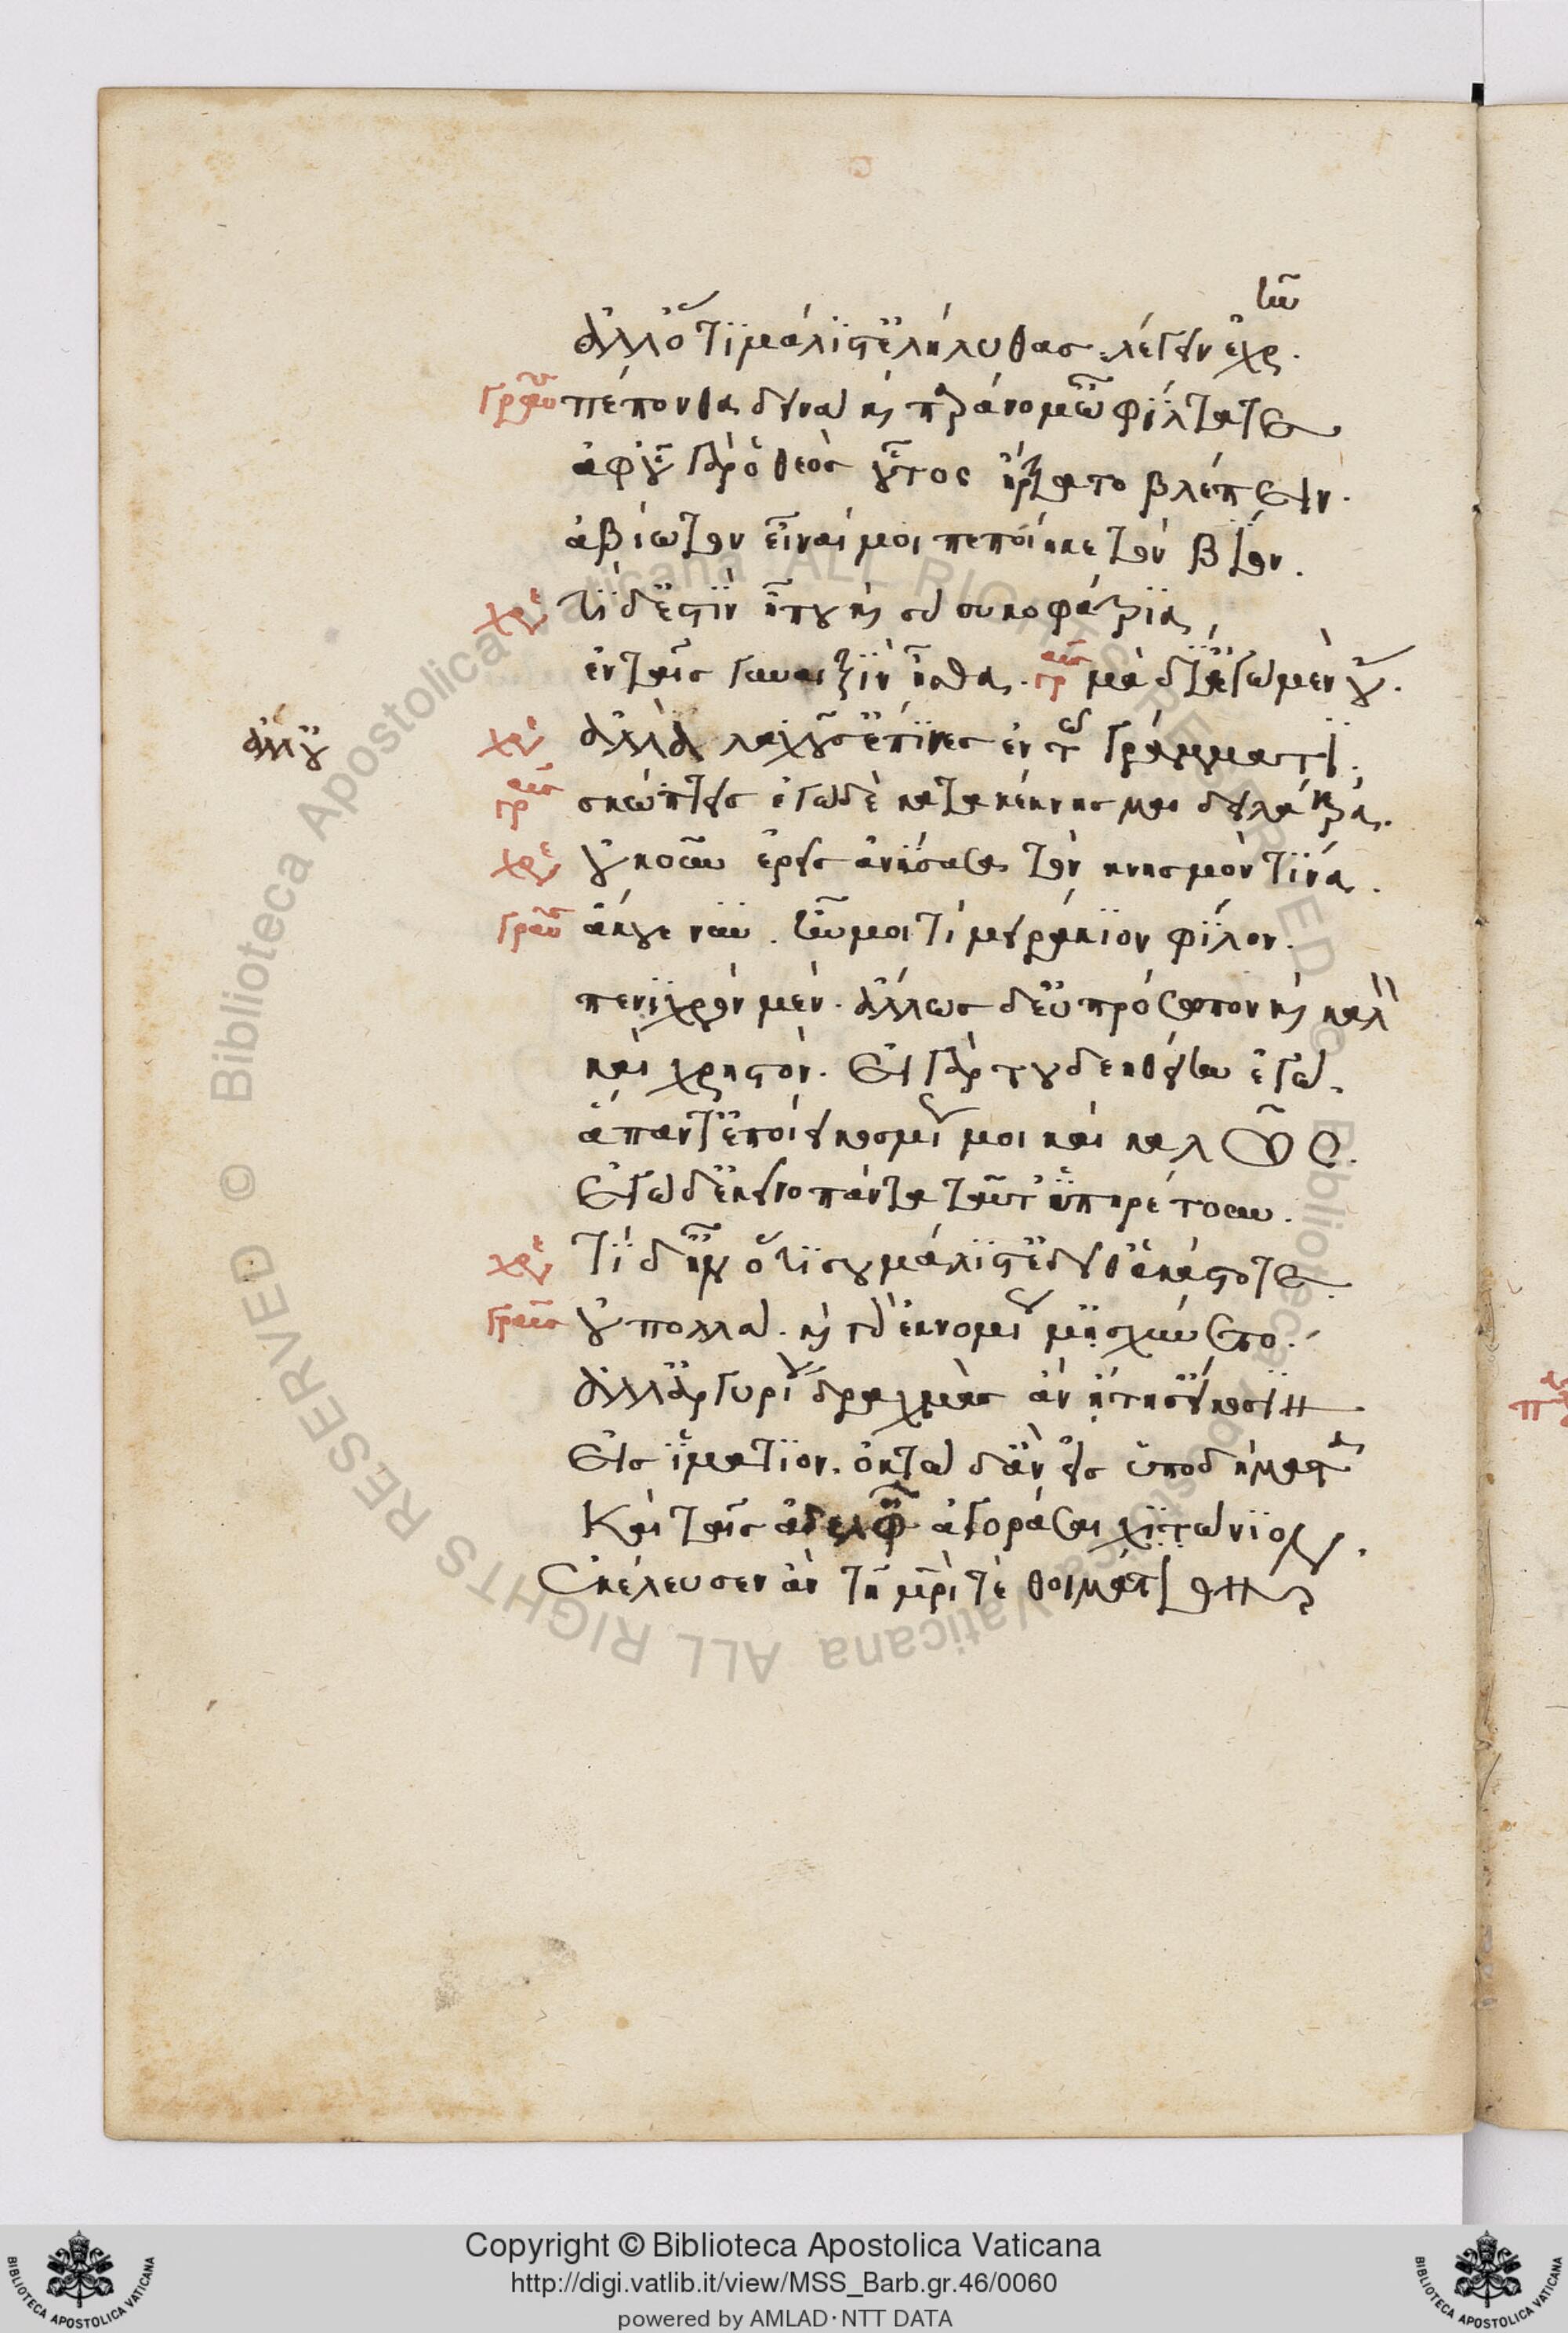 ἀλλ' ὅ τι μάλιστ' ἐλήλυθας λέγειν ἐχρῆν.
γραῦς πέπονθα δεινὰ καὶ παράνομ' ὦ φίλτατε
ἀφ' οὗ γὰρ ὁ θεὸς οὗτος ἤρξατο βλέπειν.
ἀβίωτον εἶναί μοι πεποίηκε τὸν βίον.
χρε τί δ' ἐστὶν ἦ που καὶ σὺ συκοφάντρια
ἐν ταῖς γυναιξὶν ἦσθα. γραῦς μὰ δί' ἐγὼ μὲν οὔ.
χρε ἀλλ' οὐ λαχοῦσ' ἔπινες ἐν τῷ γράμματι.
ἀλλ' οὐ
γραῦς σκώπτεις ἐγὼ δὲ κατακέκνησμαι δειλάκρα.
χρε οὔκουν ἐρεῖς ἀνύσασα τὸν κνησμὸν τίνα.
γραῦς ἄκουε νῦν. ἦν μοι τι μειράκιον φίλον.
πενιχρὸν μέν. ἄλλως δ' εὐπρόσωπον καὶ καλὸν
καὶ χρηστόν. εἰ γάρ του δεηθείην ἐγώ.
ἅπαντ' ἐποίει κοσμίως μοι καὶ καλῶς.
ἐγὼ δ' ἐκείνῳ πάντα ταῦθ' ὑπηρέτουν.
χρε τί δ' ἦν ὅ τι σου μάλιστ' ἐδεῖθ' ἑκάστοτε
γραῦς οὐ πολλά. καὶ γὰρ ἐκνομίως μ' ᾐσχύνετο.
ἀλλ' ἀργυρίου δραχμὰς ἂν ᾔτησ' εἴκοσιν
εἰς ἱμάτιον. ὀκτὼ δ' ἂν εἰς ὑποδήματα
Καὶ ταῖς ἀδελφαῖς ἀγοράσαι χιτώνιον
ἐκέλευσεν ἂν τῇ μητρί τε θοἰμάτιον
Copyright © Biblioteca Apostolica Vaticana
http://digi.vatlib.it/view/MSS_Barb.gr.46/0060
powered by AMLAD·NTT DATA